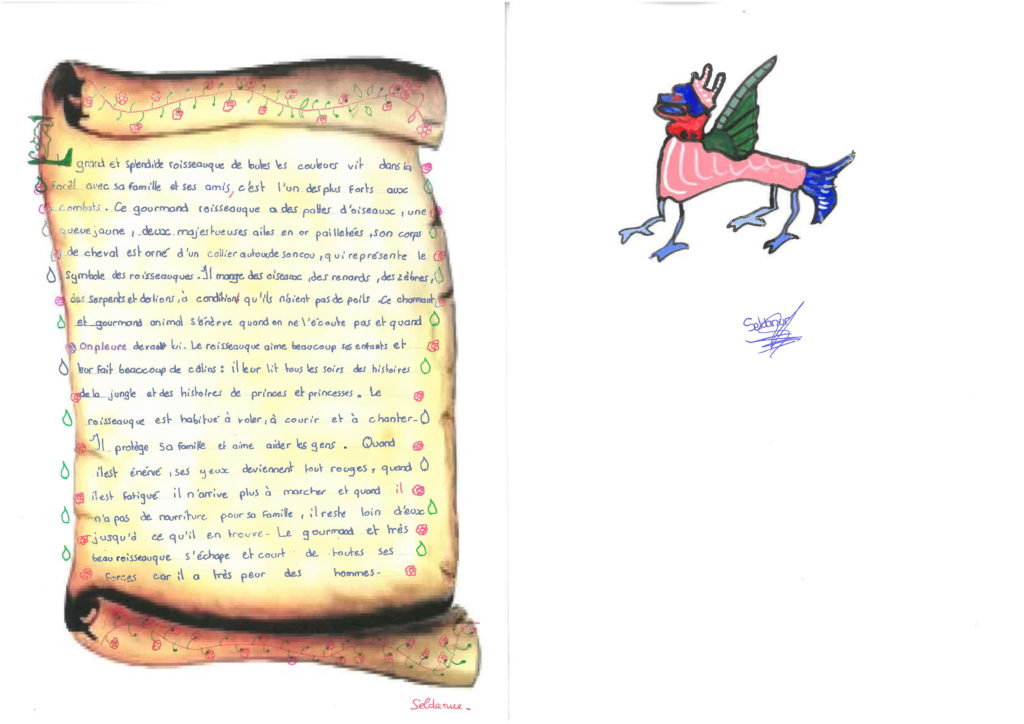 Le grand et splendide roisseauque de toutes les couleurs vit dans la
forêt avec sa famille et ses amis, c'est l'un des plus forts aux
combats. Ce gourmand roisseauque a des pattes d'oiseaux, une
queue jaune, deux majestueuses ailes en or pailletées, son corps
de cheval est orné d'un collier autour de son cou, qui représente le
symbole des roisseauques. Il mange des oiseaux, des renards, des zèbres,
des serpents et des lions, à condition qu'ils n'aient pas de poils. Ce charmant
et gourmand animal s'énerve quand on ne l'écoute pas et quand
on pleure devant lui. Le roisseauque aime beaucoup ses enfants et
leur fait beaccoup de câlins : il leur lit tous les soirs des histoires
de la jungle et des histoires de princes et princesses. Le
roisseauque est habitué à voler, à courir et à chanter.
Il protège sa famille et aime aider les gens. Quand
il est énérvé, ses yeux deviennent tout rouges, quand
il est fatigué il n'arrive plus à marcher et quand il
n'a pas de nourriture pour sa famille, il reste loin d'eux
jusqu'à ce qu'il en trouve. Le gourmand et très
beau roisseauque s'échape et court de toutes ses
forces car il a très peur des hommes.
Seldanue.
Seldanue